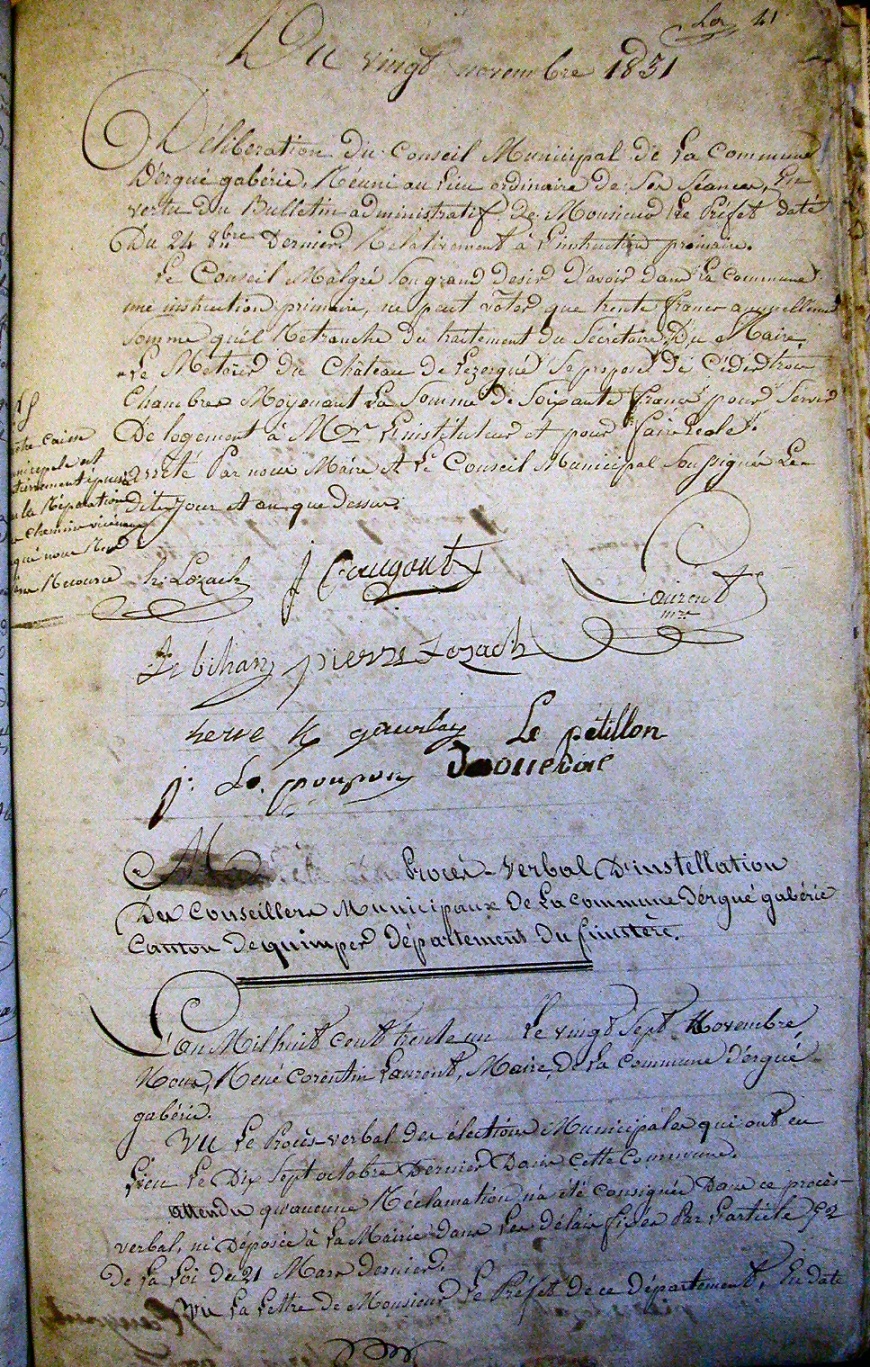 41
Du vingt novembre 1831
Déliberation du Conseil Municipal de La Commune
D'ergué gabéric, Réuni au Lieu ordinaire de Ses Séances, En
vertu du Bulletin administratif de Monsieur Le Préfet daté
Du 24 8bre Dernier Relativement à L'instruction primaire.
Le Conseil Malgré Son grand desir d'avoir dans La Commune
une instruction primaire, ne peut vôter que trente francs
Somme qu'il Retranche du traitement du Sécrétaire Du Maire.
Le Métoier du Château de Lezergué Se propose de Céder trois
Chambres Moyenant La Somme de Soixante francs pour Servir
De logement à Mr L'instituteur et pour faire Ecole.
arrêté Par nous Maire et Le Conseil Municipal Soussignés Les
dits jour et an que dessus.
notre caisse
municipale est
entierrement épuisée
la Réparation
chemins vicinaux
nous
Recourir
h: Lozach
J Caugant
Laurent
mre
Le bihan
pierre Lozach
herve
Le petillon
j: Le poupon
Procès-verbal D'instellation
Des Conseillers Municipaux de La Commune d'ergué gabéric
Canton de quimper département du finistère.
L'an Mil huit cent trente un Le vingt Sept Novembre,
Nous, René Corentin Laurent, Maire, de La Commune d'ergué
gabéric.
Vu Le Procès-verbal des élections Municipales qui ont eu
Lieu Le Dix Sept octobre Dernier Dans cette Commune.
attendu qu'aucune Réclamation n'a été consignée Dans ce procès-
verbal, ni Déposée à La Mairie dans Les délais fixés Par L'article 52
de La Loi du 21 Mars Dernier.
Vu La Lettre de Monsieur Le Préfet de ce département, En date